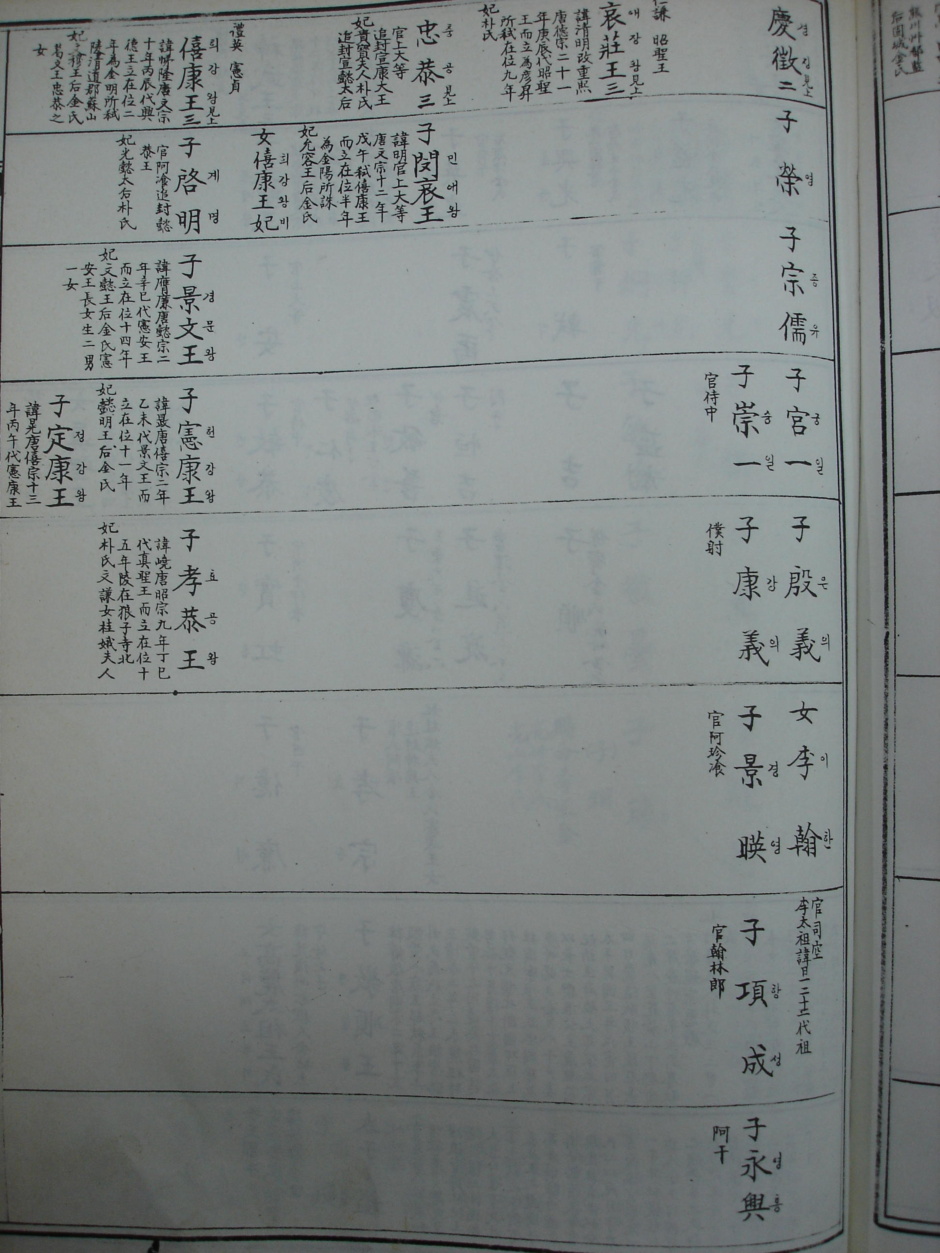 慶徵二 경징 見上
哀莊王三 애장왕 見上
諱淸明改重熙
唐德宗二十一
年庚辰代昭聖
王而立為彦昇
所弑在位九年
妃朴氏
忠恭三 충공 見上
官上大等
追封宣康大王
妃貴寶夫人朴氏
追封宣懿太后
禮英 憲貞
僖康王三 희강왕 見上
諱悌隆唐文宗
十年丙辰代興
德王立在位二
年為金明所弑
妃文穆王后金氏
葛文王忠恭之
女
子榮 영
子閔哀王 민애왕
諱明官上大等
唐文宗十二年
戊午弑僖康王
而立在位半年
為金陽所誅
妃允容王后金氏
女僖康王妃 희강왕비
子啓明 계명
官阿飡追封懿
恭王
妃光懿太后朴氏
子宗儒 종유
子景文王 경문왕
諱膺廉唐懿宗二
年辛巳代憲安王
而立在位十四年
妃文懿王后金氏憲
安王長女生二男
一女
子官一 궁일
子崇一 숭일
官侍中
子憲康王 헌강왕
諱晸唐僖宗二年
乙未代景文王而
立在位十一年
妃懿明王后金氏
子定康王 정강왕
諱晃唐僖宗十三
年丙午代憲康王
子殷義 은의
子康義 강의
僕射
子孝恭王 효공왕
諱嶢唐昭宗九年丁巳
代真聖王而立在位十
五年陵在狼子寺北
妃朴氏文謙女桂娥夫人
女李翰 이한
子景暎 경영
官阿珍飡
官司空
李太祖諱旦二十二代祖
子項成 항성
官翰林郎
子永興 영흥
阿干